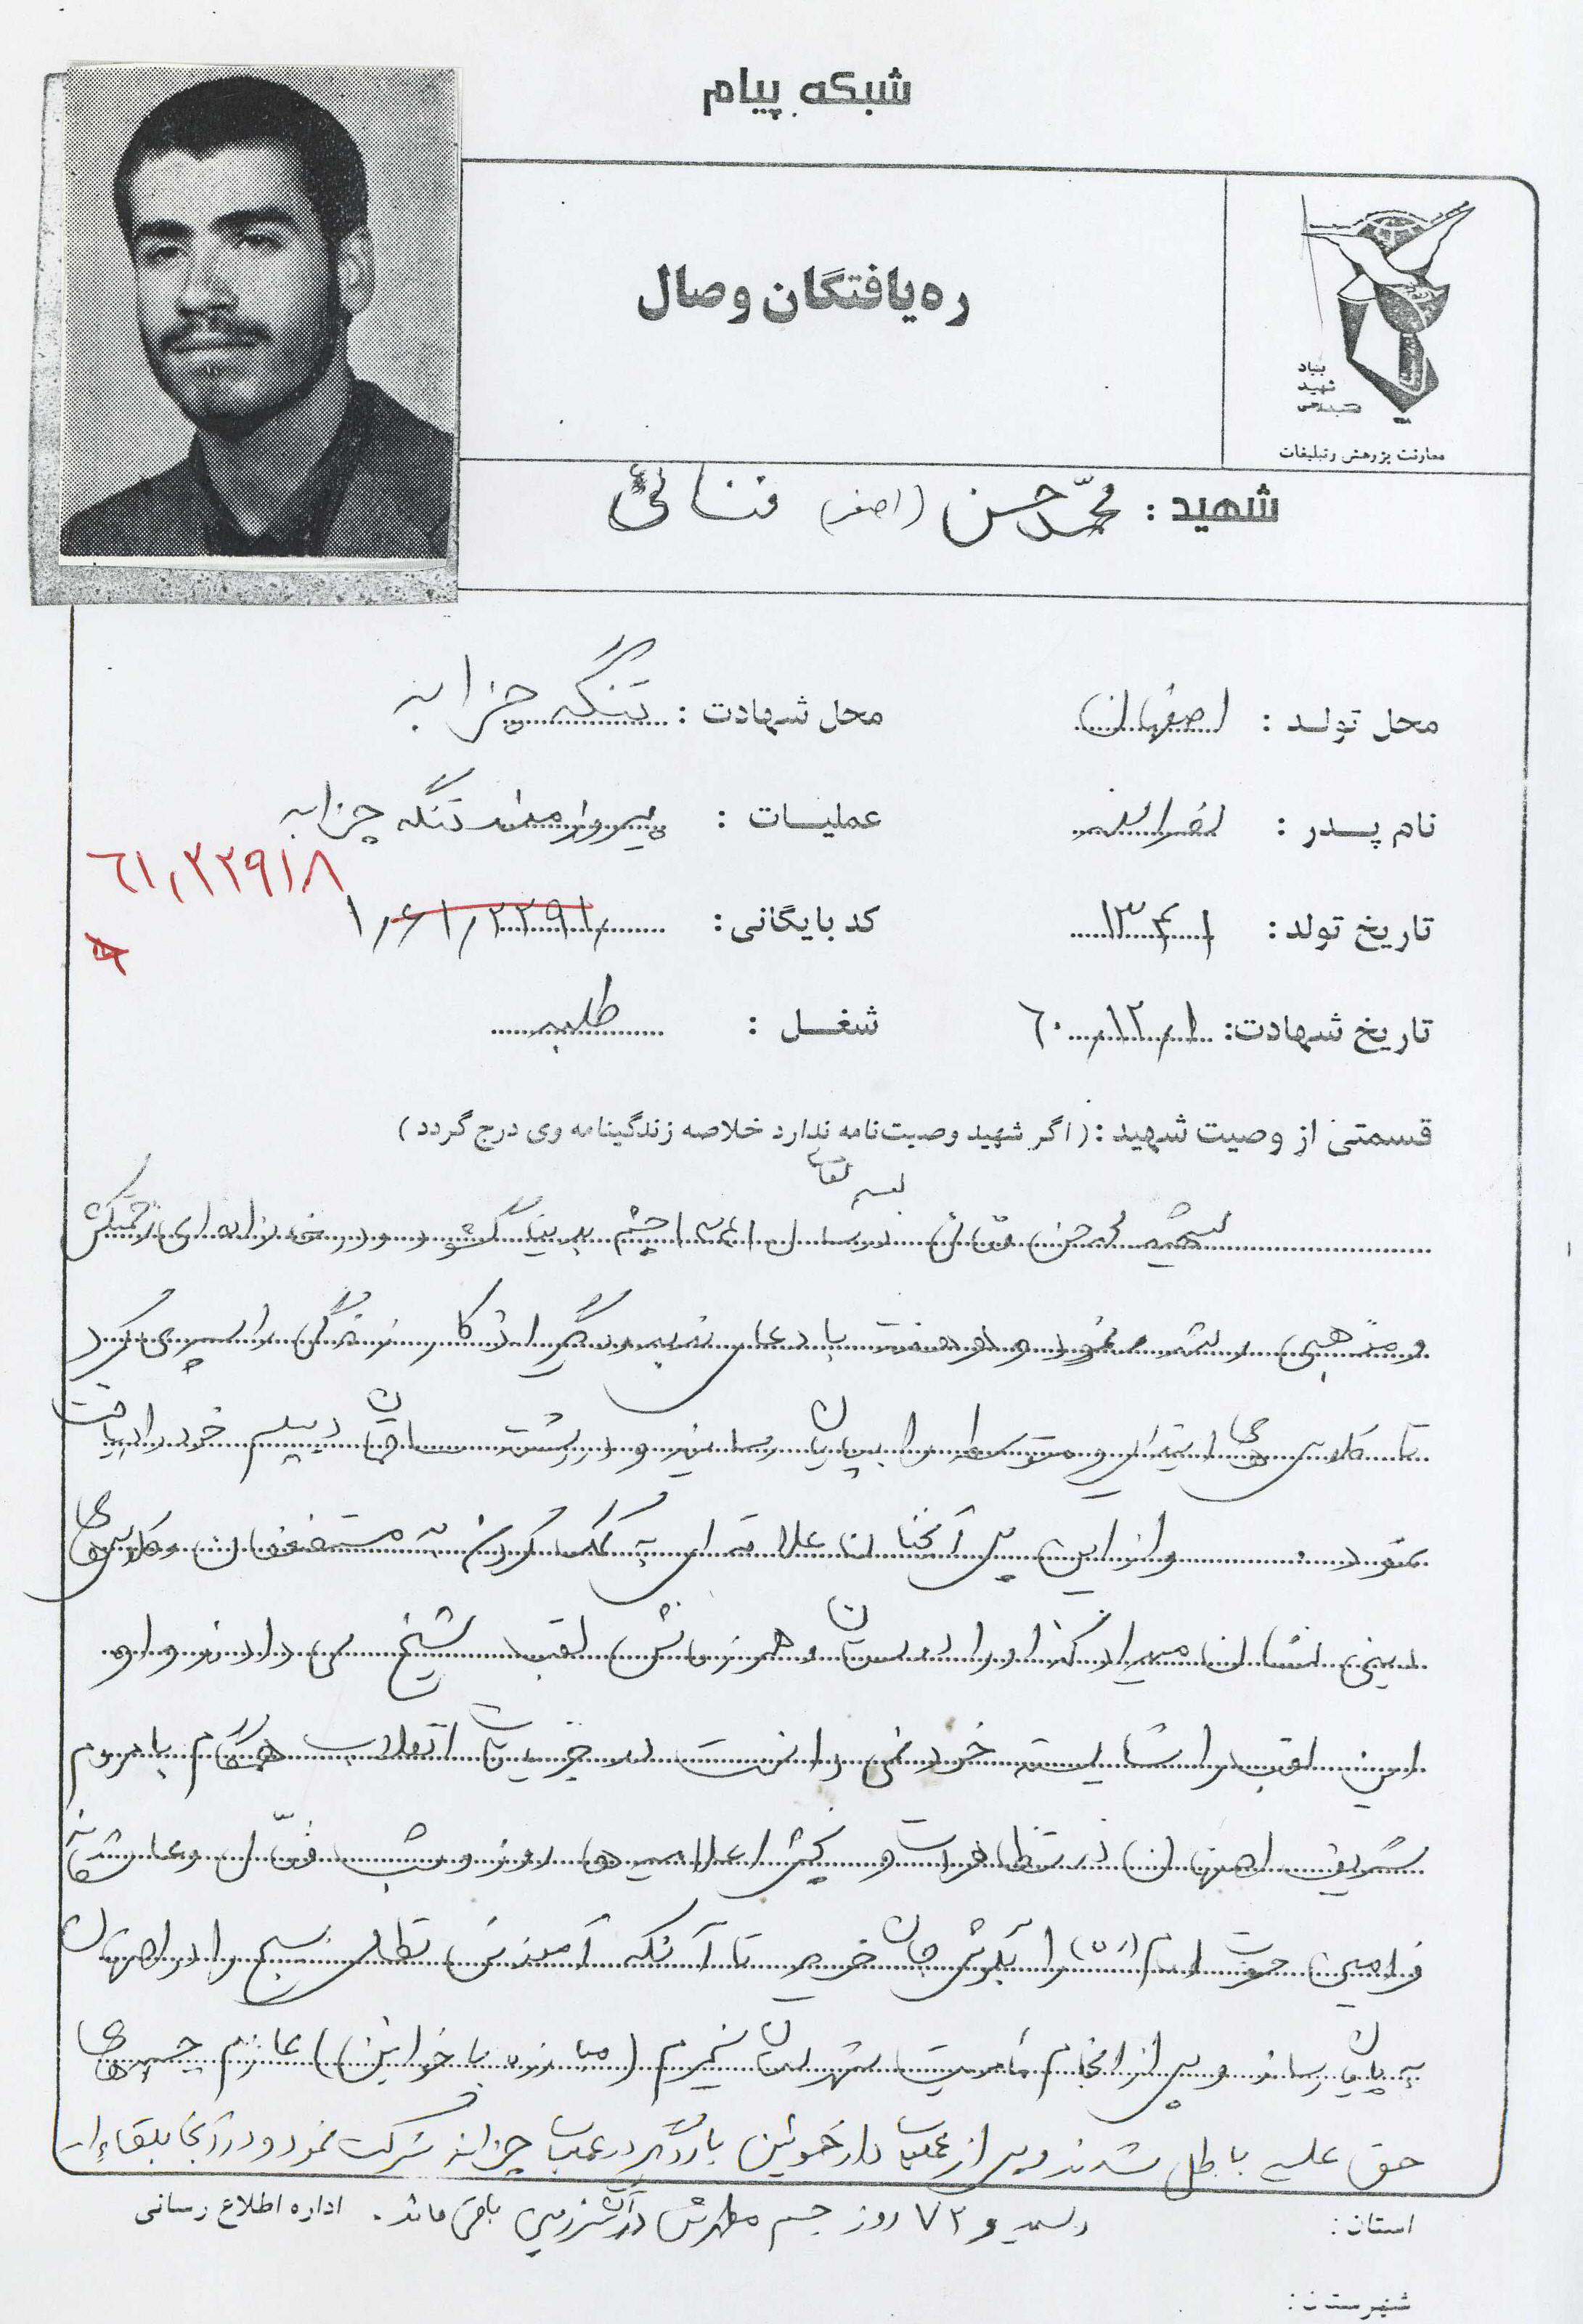 شبکه پیام
ره‌یافتگان وصال
بنیاد
شهید
معاونت پژوهش و تبلیغات
شهید : محمّدحسن (اصغر) فنائی
محل تولد : اصفهان
محل شهادت : تنگه چزابه
نام پدر :
عملیات : تنگه چزابه
٦١,٢٢٩١٨
تاریخ تولد : ۱۳۴۱
کد بایگانی : ۱,۶۱,۲۲۹۱
تاریخ شهادت : ٦٠,١٢,١
شغل : طلبه
قسمتی از وصیت شهید : (اگر شهید وصیت‌نامه ندارد خلاصه زندگینامه وی درج گردد)
بسمه تعالی
شهید محمدحسن فنائی در سال ۱۳۴۱ چشم به دنیا گشود و در خانواده‌ای زحمتکش
و مذهبی رشد نمود و هر هفته با دعای ندبه و دیگر اذکار زندگی را سپری کرد
تا کلاس های ابتدایی و متوسطه را بپایان رسانید و در رشته ساختمان دیپلم خود را دریافت
نمود. و از این پس آنچنان علاقه ای به کمک کردن به مستضعفان و کلاس ها
دینی نشان میداد که او را دوستان و همرزمانش لقب شیخ می دادند و او
این لقب را شایسته خود نمی دانست در جریانات انقلاب همگام با مردم
شریف اصفهان در تظاهرات و پخش اعلامیه ها روز و شب فعّال و عاشقانه
فرامین حضرت امام (ره) را بگوش جان خرید تا آنکه آموزش نظامی بسیج را در اصفهان
به پایان رساند و پس از انجام مأموریت شهرستان سمیرم (مبارزه با خوانین) عازم جبهه های
حق علیه باطل شدند و پس از عملیات دارخوئین بار دیگر در عملیات چزابه شرکت نمود و در آنجا بلقاءا...
رسید و ۷۲ روز جسم مطهرش در آن سرزمین باقی ماند.
اداره اطلاع رسانی
استان :
شهرستان :